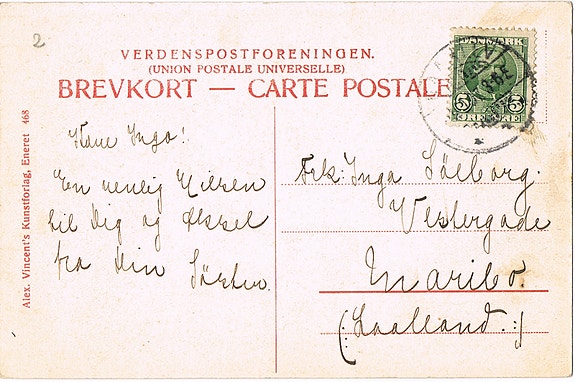 2
VERDENSPOSTFORENINGEN.
(UNION POSTALE UNIVERSELLE)
BREVKORT — CARTE POSTALE
DANMARK
5 5
ØRE ØRE
Alex. Vincent's Kunstforlag, Eneret 468
Kære Inga!
En venlig Hilsen
til Dig og Aksel
fra Din
Frk: Inga Sölborg.
Vestergade
Maribo.
(: Laalland. :)